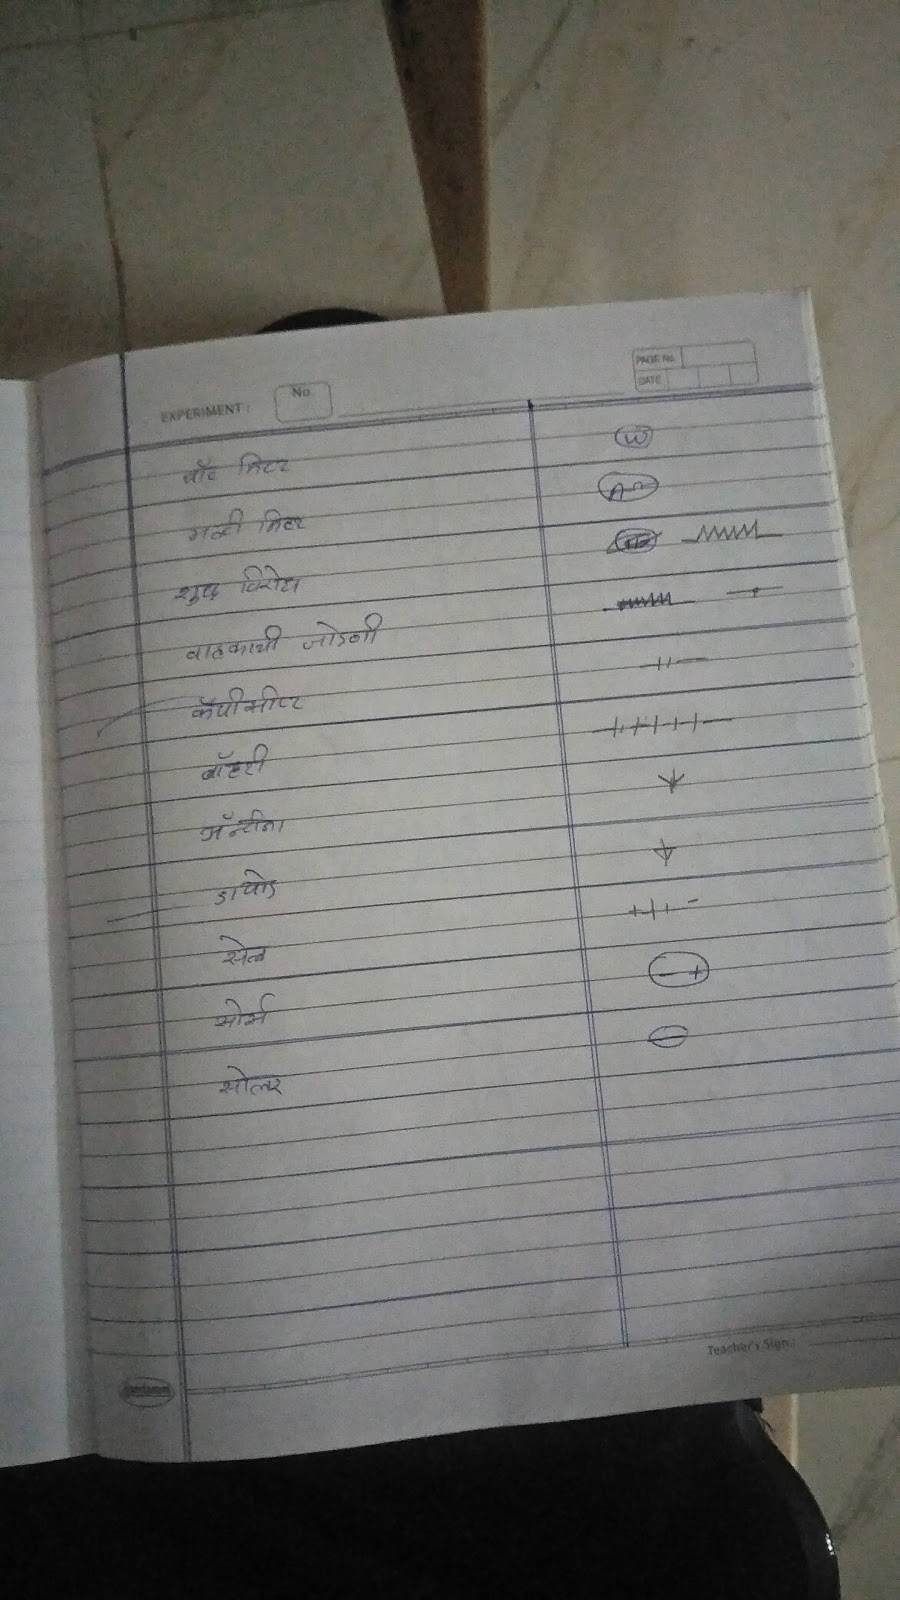 EXPERIMENT: No.
PAGE No.
DATE
वॉट मिटर W
मिटर
शुद्ध विरोध
वाहकाची जोडणी
कॅपॅसीटर
बॅटरी
अँन्टीना
डायोड
सेल
सोर्स
सोलर
Teacher's Sign.: